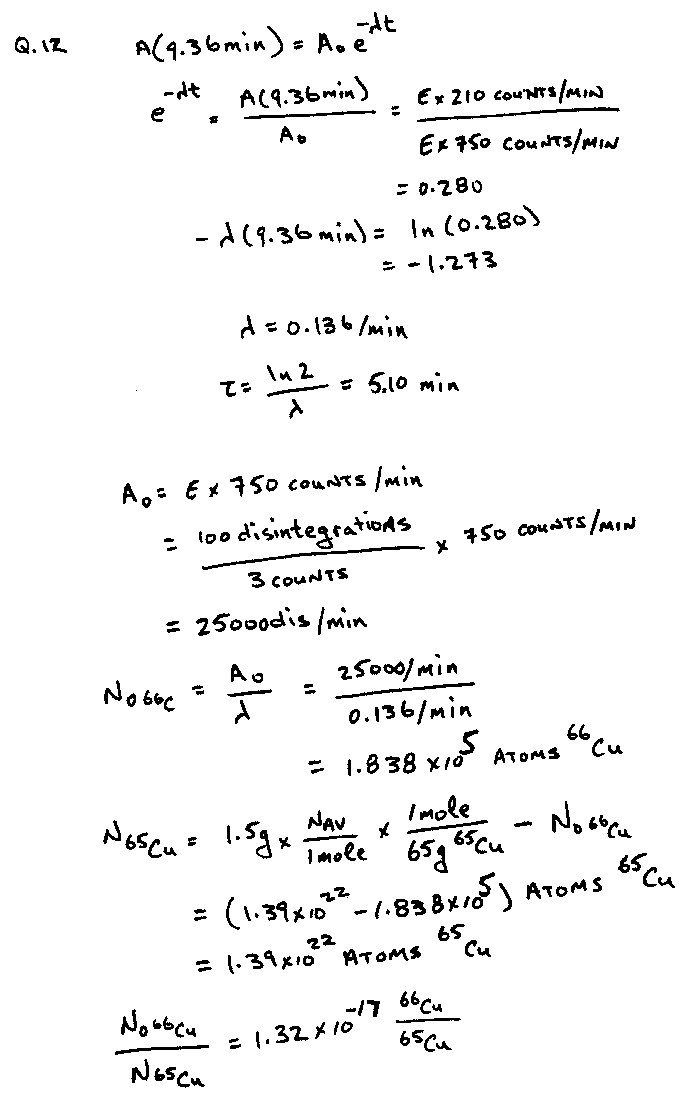 Q.12 A(9.36min) = A₀e^-λt
e^-λt = A(9.36min)/A₀ = E × 210 COUNTS/MIN / E × 750 COUNTS/MIN
= 0.280
-λ(9.36min) = ln(0.280)
= -1.273
λ = 0.136/min
τ = ln2/λ = 5.10 min
A₀ = E × 750 COUNTS/min
= 100 disintegrations / 3 COUNTS × 750 COUNTS/MIN
= 25000dis/min
N₀66C = A₀/λ = 25000/min / 0.136/min
= 1.838 × 10^5 ATOMS ^66Cu
N65Cu = 1.5g × NAV/1mole × 1mole/65g ^65Cu - N₀66Cu
= (1.39×10^22 - 1.838×10^5) ATOMS ^65Cu
= 1.39×10^22 ATOMS ^65Cu
N₀66Cu/N65Cu = 1.32 × 10^-17 ^66Cu/65Cu